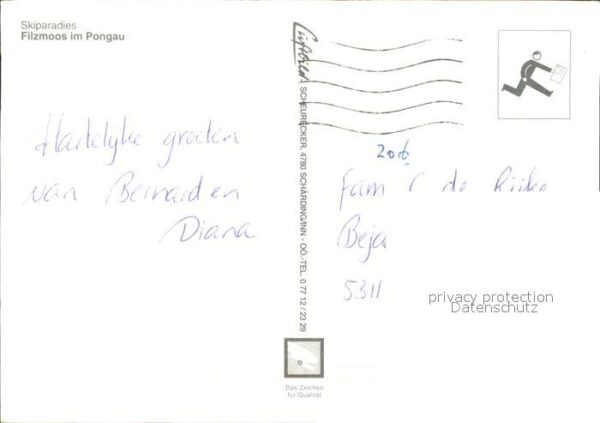 Skiparadies
Filzmoos im Pongau
Hartelijke groeten
van Bernard en
Diana
Luftbild
SCHEURECKER, 4780 SCHÄRDING/INN - OÖ.-TEL. 0 77 12 / 23 29
Fam de
Beja
5311
privacy protection
Datenschutz
Das Zeichen
für Qualität